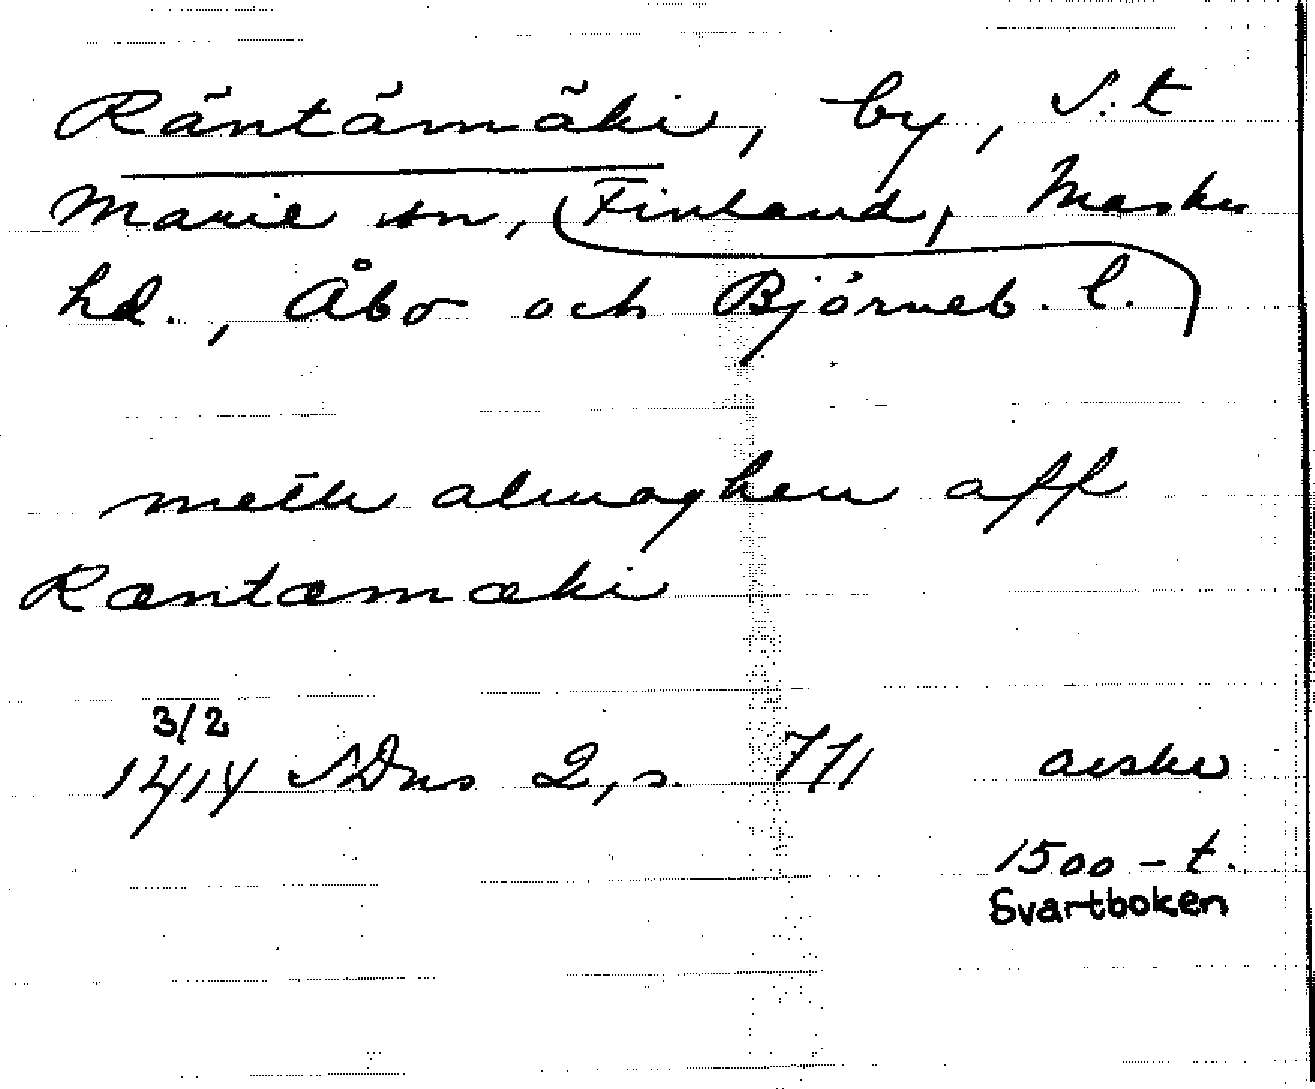 Räntämäki, by, S:t
Marie sn, (Finland, Masku
hd., Åbo och Björneb. l.)
meth almoghen aff
Ræntæmæki
3/2
1414 SDns 2, s. 771 avskr
1500-t.
Svartboken